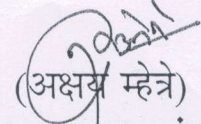 (अक्षय म्हेत्रे)